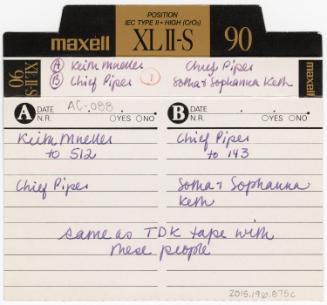 POSITION
IEC TYPE II • HIGH (CrO₂)
maxell XLII-S 90
XLII-S 90
Ⓐ Keith Mueller Chief Pipes
Ⓑ Chief Pipes ① Soma & Sophanna Keth
A DATE AC-088
N.R. ○YES ○NO
B DATE
N.R. ○YES ○NO
Keith Mueller
to 512
Chief Pipes
Chief Pipes
to 143
Soma & Sophanna
Keth
same as TDK tape with
these people
2015.196.875c